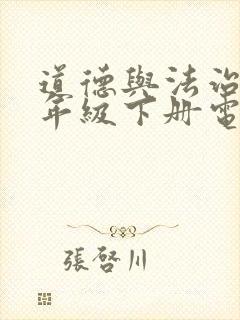 道德與法治
年級下册電
張啓川